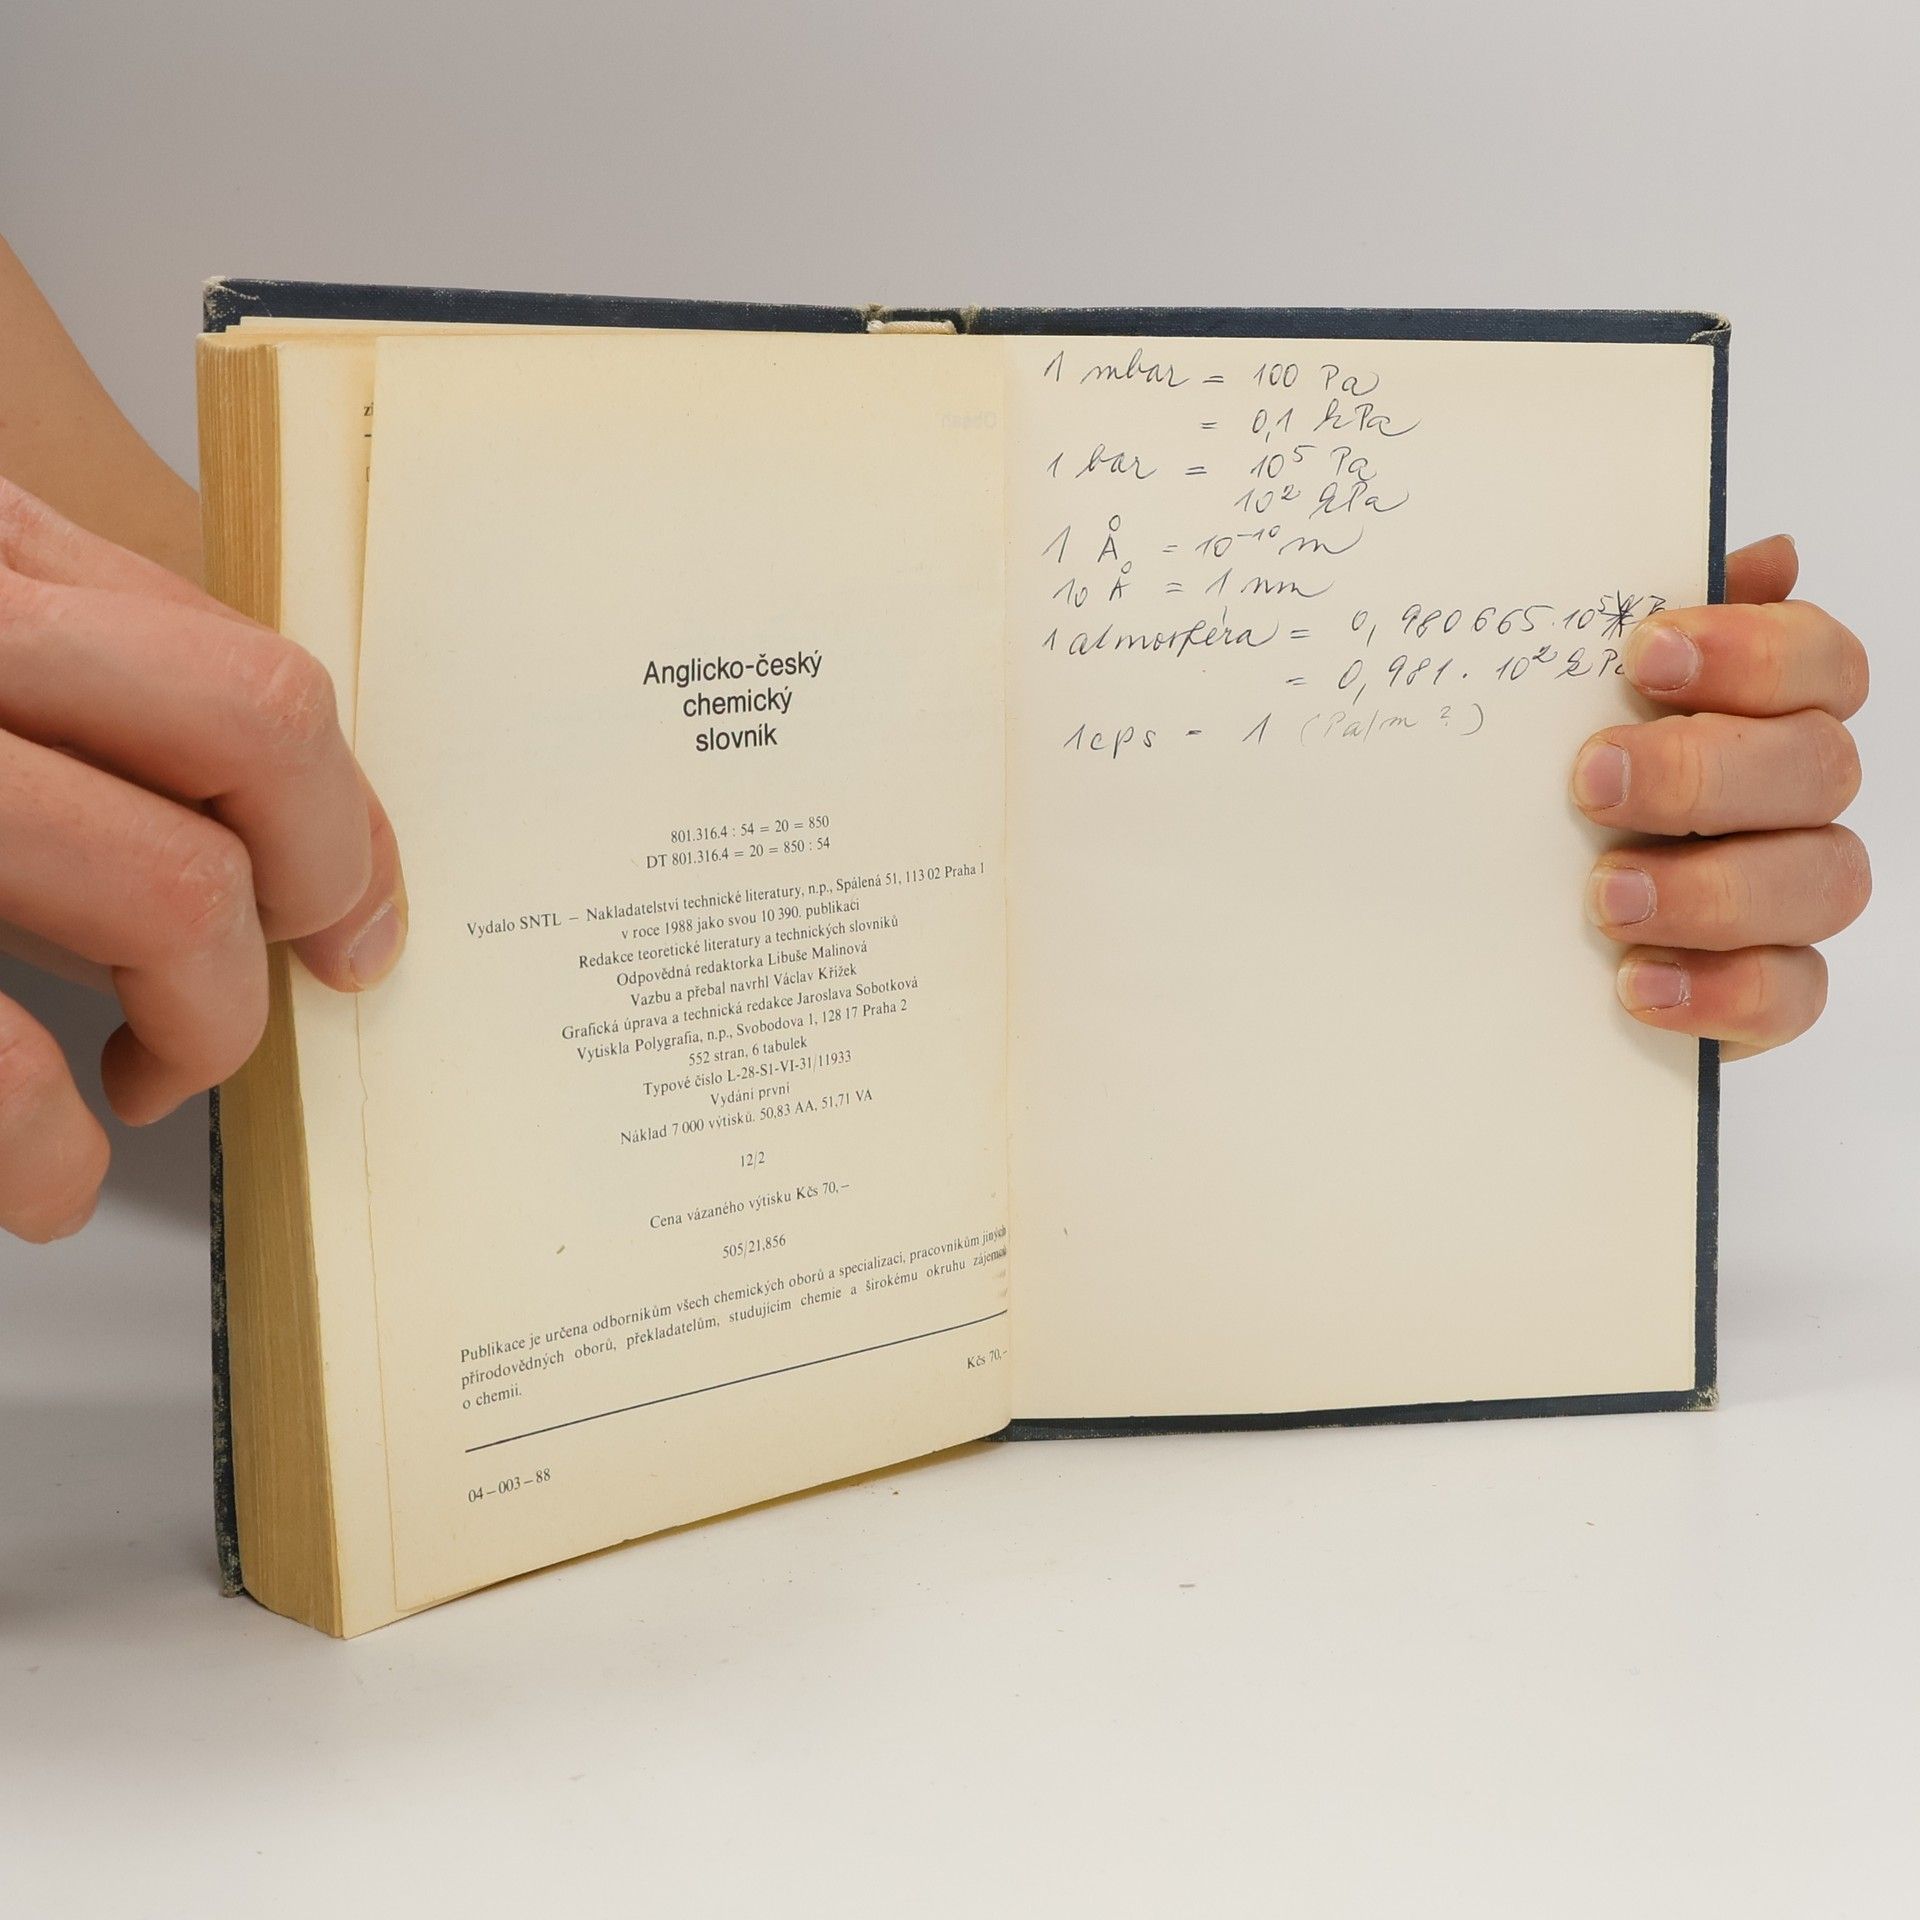 Anglicko-český
chemický
slovník
801.316.4 : 54 = 20 = 850
DT 801.316.4 = 20 = 850 : 54
Vydalo SNTL – Nakladatelství technické literatury, n.p., Spálená 51, 113 02 Praha 1
v roce 1988 jako svou 10 390. publikaci
Redakce teoretické literatury a technických slovníků
Odpovědná redaktorka Libuše Malinová
Vazbu a přebal navrhl Václav Křížek
Grafická úprava a technická redakce Jaroslava Sobotková
Vytiskla Polygrafia, n.p., Svobodova 1, 128 17 Praha 2
552 stran, 6 tabulek
Typové číslo L-28-S1-VI-31/11933
Vydání první
Náklad 7 000 výtisků. 50,83 AA, 51,71 VA
12/2
Cena vázaného výtisku Kčs 70,–
505/21,856
Publikace je určena odborníkům všech chemických oborů a specializací, pracovníkům jiných
přírodovědných oborů, překladatelům, studujícím chemie a širokému okruhu zájemců
o chemii.
Kčs 70,–
04–003–88
1 mbar = 100 Pa
= 0,1 kPa
1 bar = 10⁵ Pa
10² kPa
1 Å = 10⁻¹⁰ m
10 Å = 1 nm
1 atmosféra = 0,980665.10⁵
= 0,981. 10² kPa
1cps = 1 (Pa/m ?)